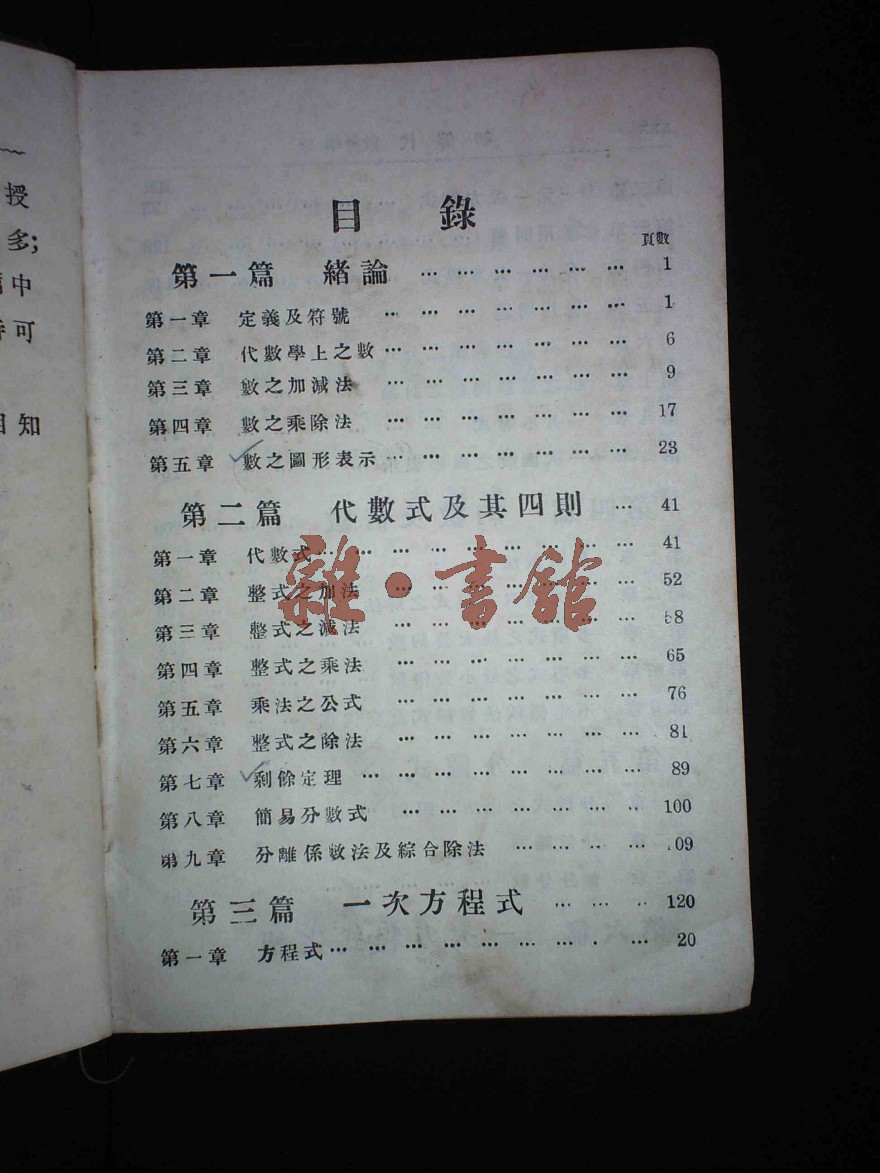 授
多;
中
可
知
目錄
頁數
第一篇 緒論 … … … … … … 1
第一章 定義及符號 … … … … … … … 1
第二章 代數學上之數 … … … … … … … 6
第三章 數之加減法 … … … … … … … 9
第四章 數之乘除法 … … … … … … … 17
第五章 數之圖形表示 … … … … … … … 23
第二篇 代數式及其四則 … 41
第一章 代數式 … … … … … … … … … 41
第二章 整式之加法 … … … … … … … 52
第三章 整式之減法 … … … … … … … 58
第四章 整式之乘法 … … … … … … … 65
第五章 乘法之公式 … … … … … … … 76
第六章 整式之除法 … … … … … … … 81
第七章 剩餘定理 … … … … … … … … 89
第八章 簡易分數式 … … … … … … … 100
第九章 分離係數法及綜合除法 … … … … 09
第三篇 一次方程式 … … … 120
第一章 方程式 … … … … … … … … … 20
雜·書舘